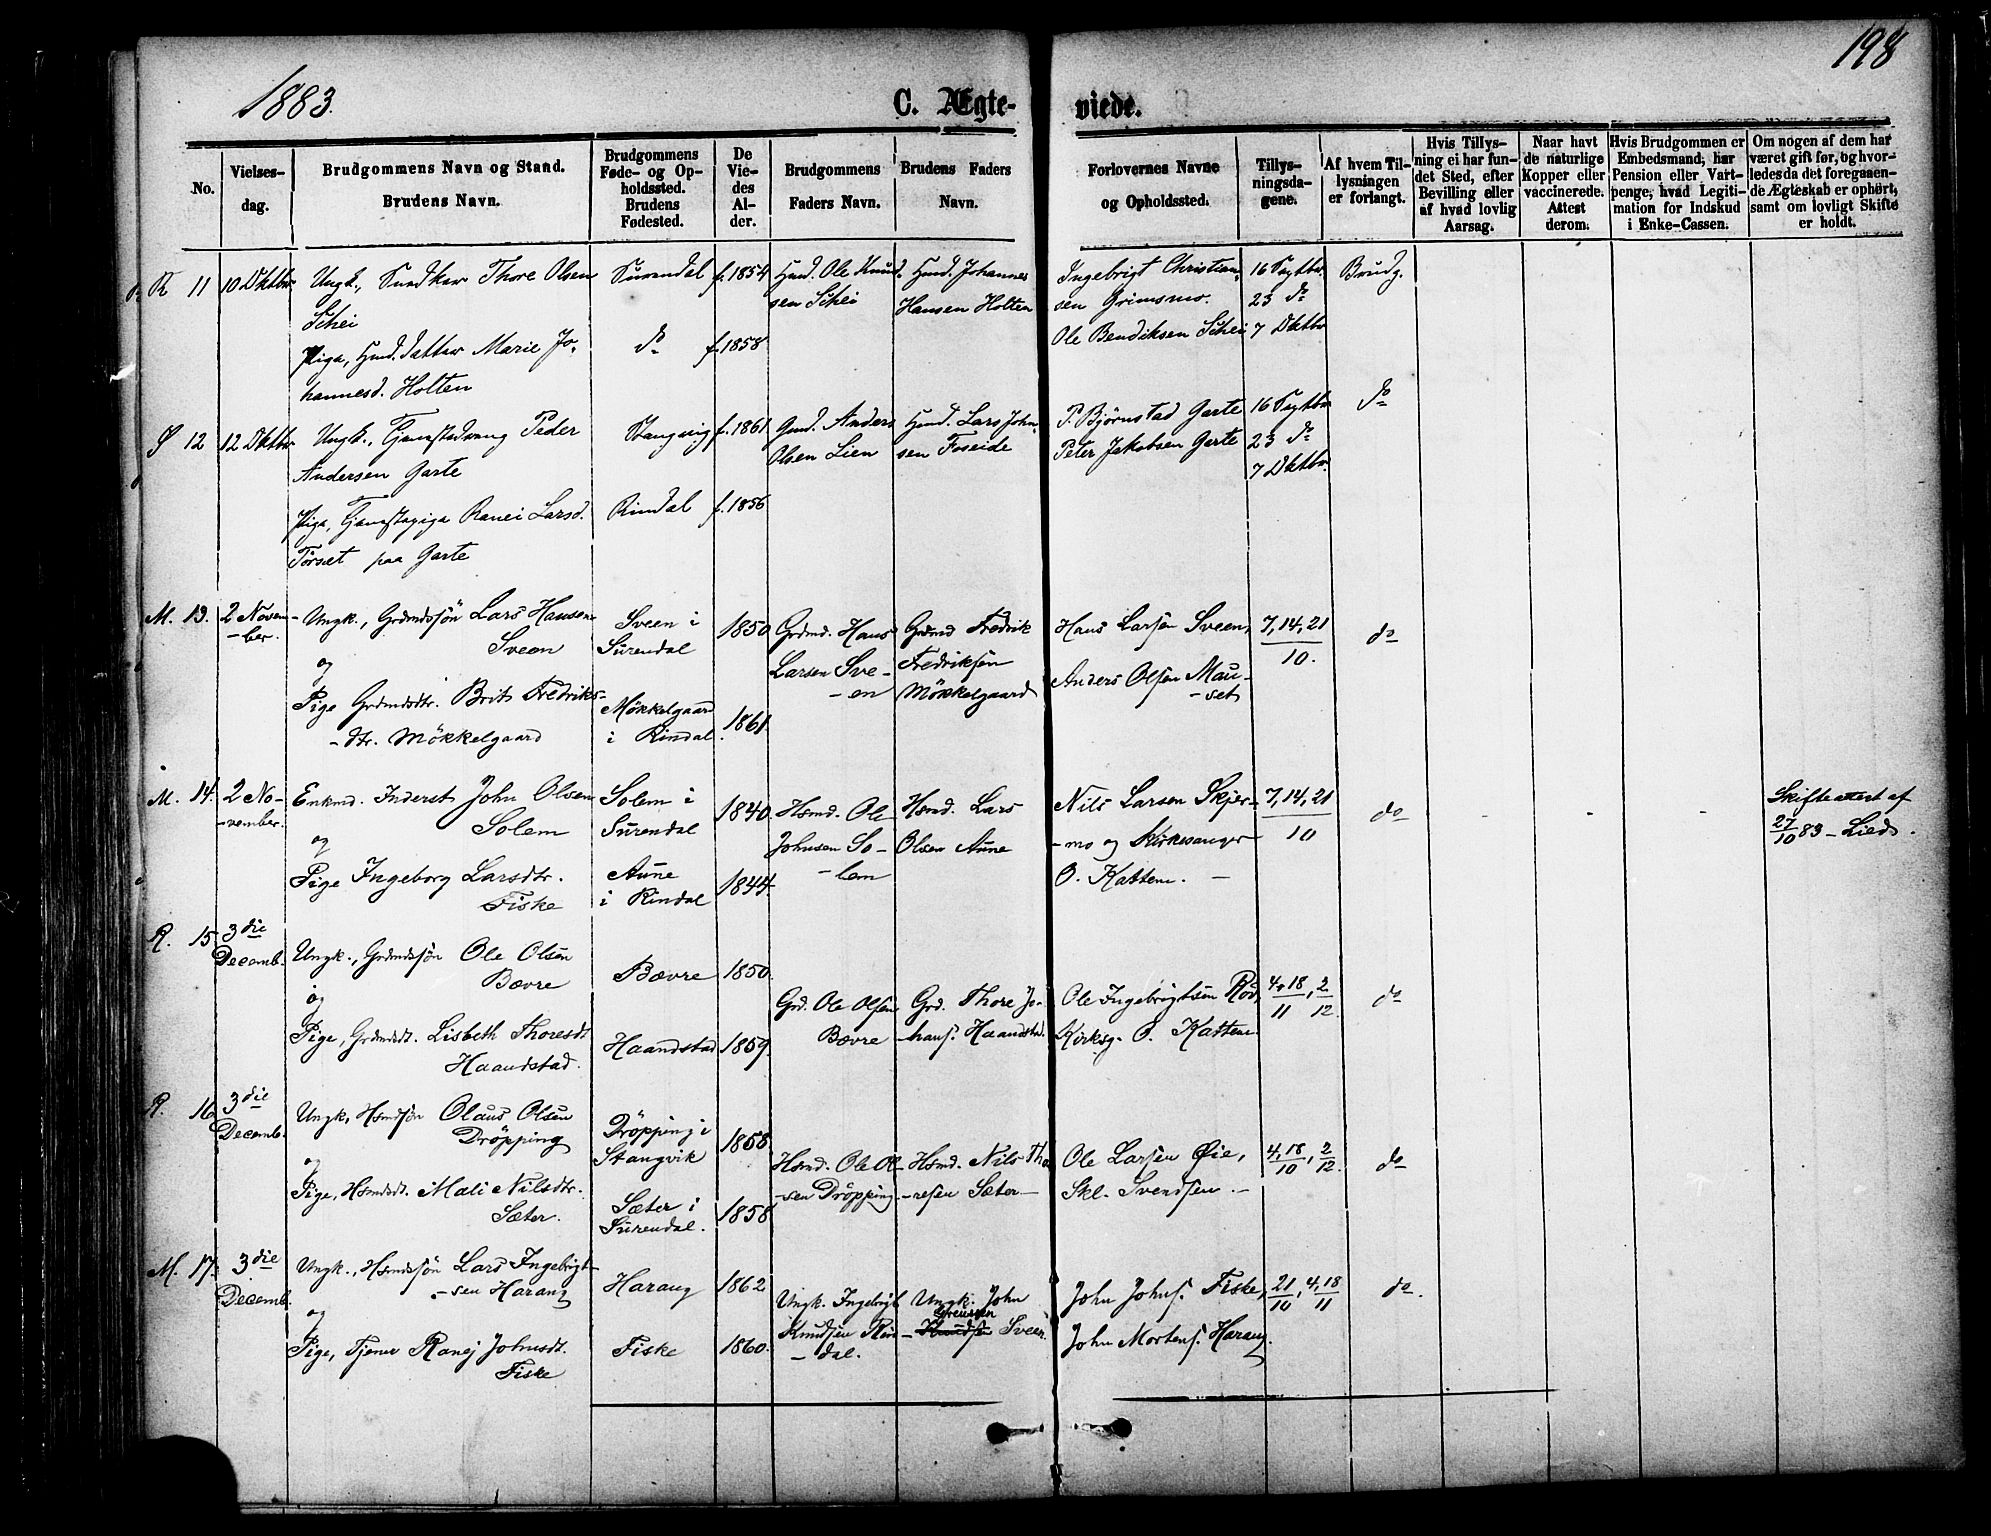 198
1883.
C. Ægte-viede.
No.
Vielses-dag.
Brudgommens Navn og Stand.
Brudens Navn.
Brudgommens Føde- og Opholdssted. Brudens Fødested.
De Viedes Alder.
Brudgommens Faders Navn.
Brudens Faders Navn.
Forlovernes Navne og Opholdssted.
Tillysningsdagene.
Af hvem Tillysningen er forlangt.
Hvis Tillysning ei har fundet Sted, efter Bevilling eller af hvad lovlig Aarsag.
Naar havt de naturlige Kopper eller vaccinerede. Attest derom.
Hvis Brudgommen er Embedsmand, har Pension eller Vartpenge, hvad Legitimation for Indskud i Enke-Cassen.
Om nogen af dem har været gift før, og hvorledes da det foregaaende Ægteskab er ophørt, samt om lovligt Skifte er holdt.
R 11 10 Oktbr. Ungk., Thore Olsen Surendal f. 1854 Ole Knud- Johannes Ingebrigt Christian- 16 Septbr. Brudg.
Schei sen Schei Hansen Holten sen Grimsmo. 23 do
Pige, datter Marie Jo- do f. 1858 Ole Bendiksen Schei 7 Oktbr
hannesd. Holten
12 12 Oktbr. Ungk., Peder Stangvig f. 1861 Anders Lars John- P. Bjørnstad Garte 16 Septbr do
Andersen Garte Olsen Lien sen Foseide Peter Jakobsen Garte 23 do
7 Oktbr.
Pige, Tjenestepige Ranei Larsd. Rindal f. 1856
Torset paa Garte
M. 13. 2 Novem- Ungk., Grdmdssön Lars Hansen Sveen i 1850 Grdmd. Hans Grdmd Fredrik Hans Larsen Sveen, 7, 14, 21 do
-ber. Sveen Surendal Larsen Sve- Fredriksen Anders Olsen Mau- 10.
og -en Mökkelgaard -set
Pige Grdmdsdtr. Brit Fredriks- Mökkelgaard 1861.
-dtr. Mökkelgaard i Rindal
M. 14. 2 No- Enkmd. Inderst John Olsen Solem i 1840. Hsmd. Ole Hsmd. Lars Nils Larsen Skjer- 7, 14, 21 do - - - Skifteattest af
-vember. Solem Surendal Johnsen So- Olsen Aune -mo og Kirkesanger 10 27/10 83 - Lied.
og -lem O. Kattem. -
Pige Ingeborg Larsdtr. Aune 1844.
Fiske i Rindal
R. 15. 3die Ungk., Grdmdssön Ole Olsen Bævre 1850.
Decemb. Bævre
og Grd. Ole Olsen Grd. Thore Jo- Ole Ingebrigtsen 4, 18/11, 2/12 do
Pige, Grdmdsdt. Lisbeth Thoresdt. Haandstad 1859. Bævre -hans. Haandstad. Kirksg. O. Kattem
Haandstad.
R. 16. 3die Ungk, Hsmdssön Olaus Olsen Dröpping i 1858
Decemb. Dröpping Stangvik
og Hsmd. Ole Ol- Hsmd. Nils Tho- Ole Larsen Øie, 4, 18/10, 2/12. do
Pige, Hsmdsdt. Mali Nilsdtr. Sæter i 1858 -sen Dröpping. -resen Sæter - Skl. Svendsen. -
Sæter. Surendal.
M. 17. 3die Ungk., Hsmdssön Lars Ingebrigt- Harang 1862
Decemb. -sen Harang Ungk. Ingebrigt Ungk. John John Johns. Fiske, 21/10, 4, 18/11 do.
og Knudsen Rin- Knudsen Sveen John Mortens. Harang.
Pige, Tjener Ranej Johnsdt. Fiske 1860. -dal.
Fiske